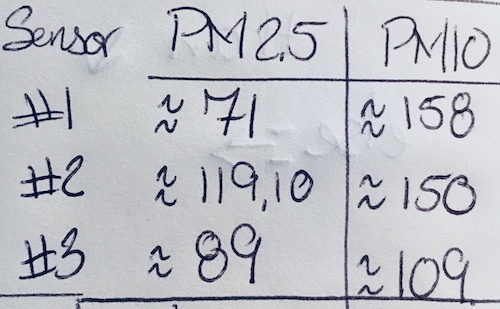 Sensor PM2.5 PM10
#1 ≈ 71 ≈ 158
#2 ≈ 119,10 ≈ 150
#3 ≈ 89 ≈ 109